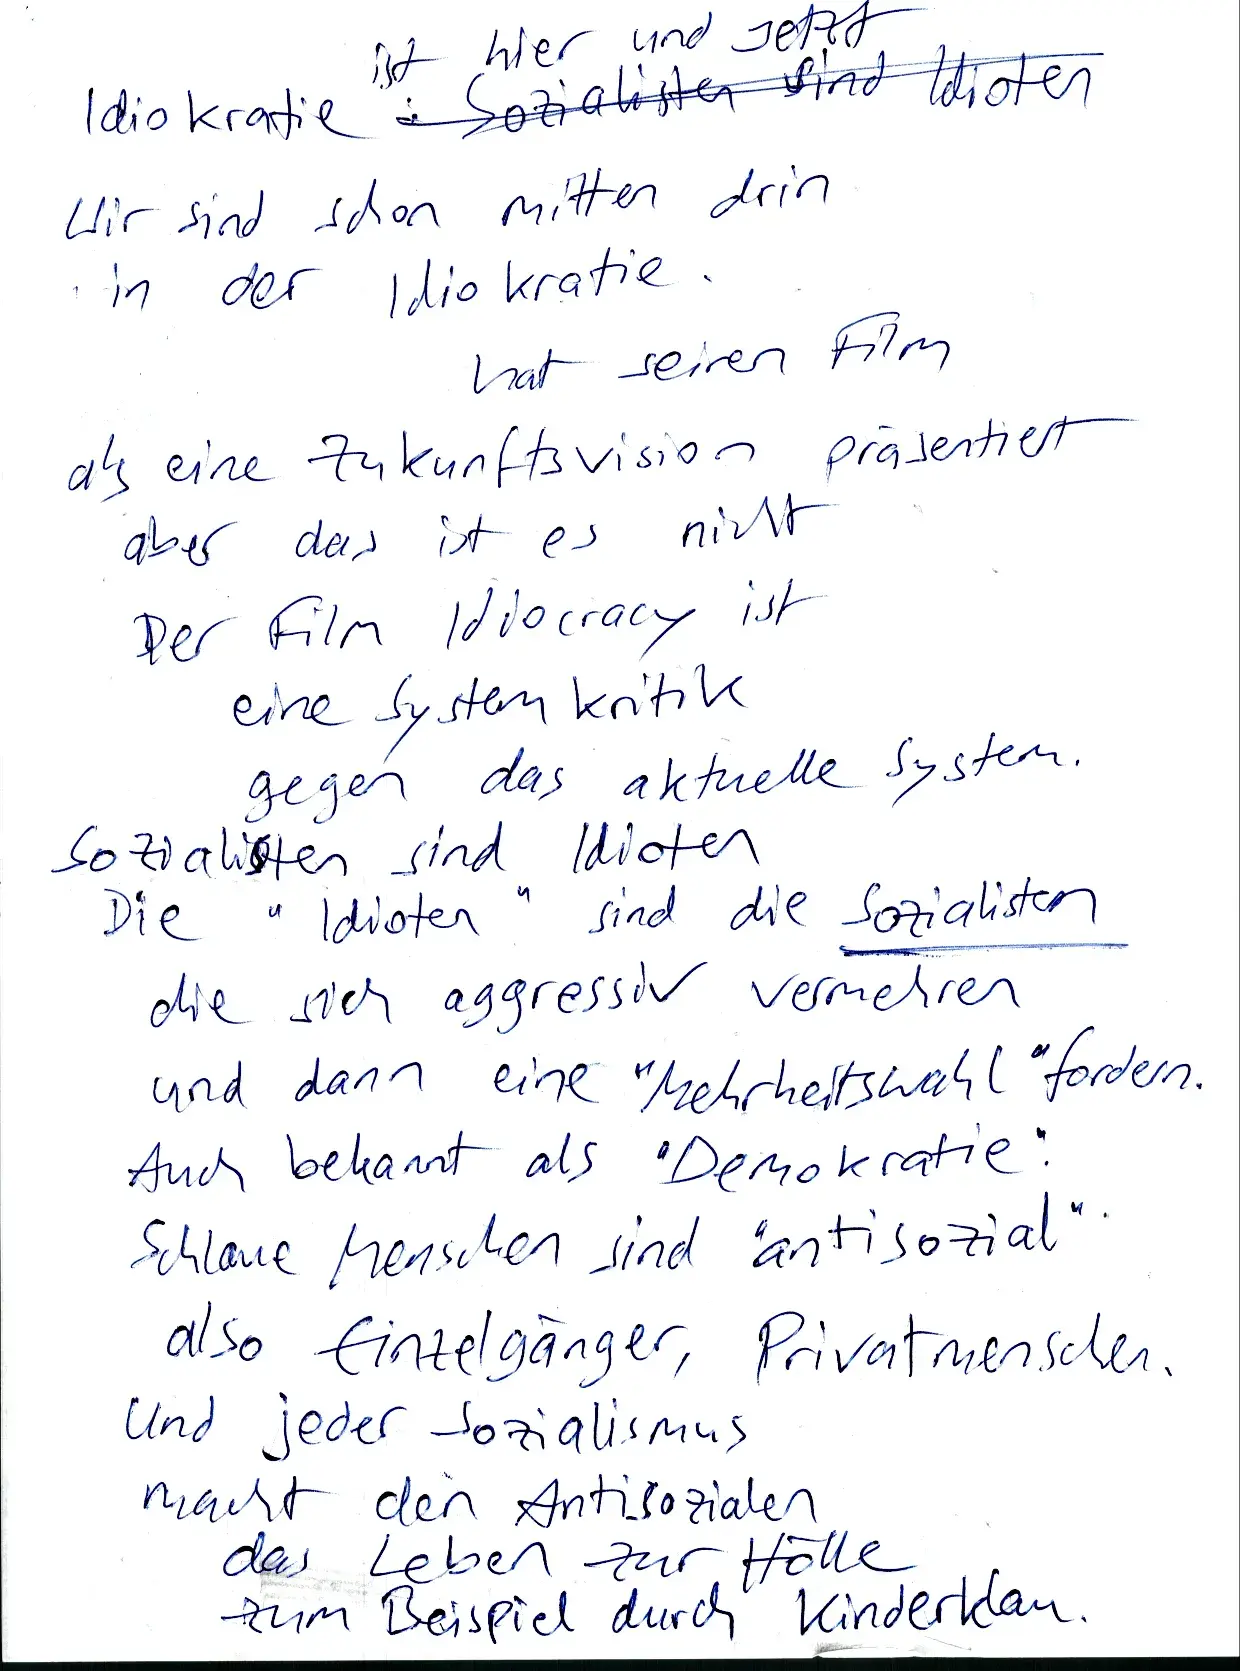 ist hier und jetzt
Idiokratie : Sozialisten sind Idioten
Wir sind schon mitten drin
in der Idiokratie.
hat seinen Film
als eine Zukunftsvision präsentiert
aber das ist es nicht
Der Film Idiocracy ist
eine Systemkritik
gegen das aktuelle System.
Sozialisten sind Idioten
Die "Idioten" sind die Sozialisten
die sich aggressiv vermehren
und dann eine "Mehrheitswahl" fordern.
Auch bekannt als "Demokratie".
Schlaue Menschen sind "antisozial".
also Einzelgänger, Privatmenschen.
Und jeder Sozialismus
macht den Antisozialen
das Leben zur Hölle
zum Beispiel durch Kinderklau.